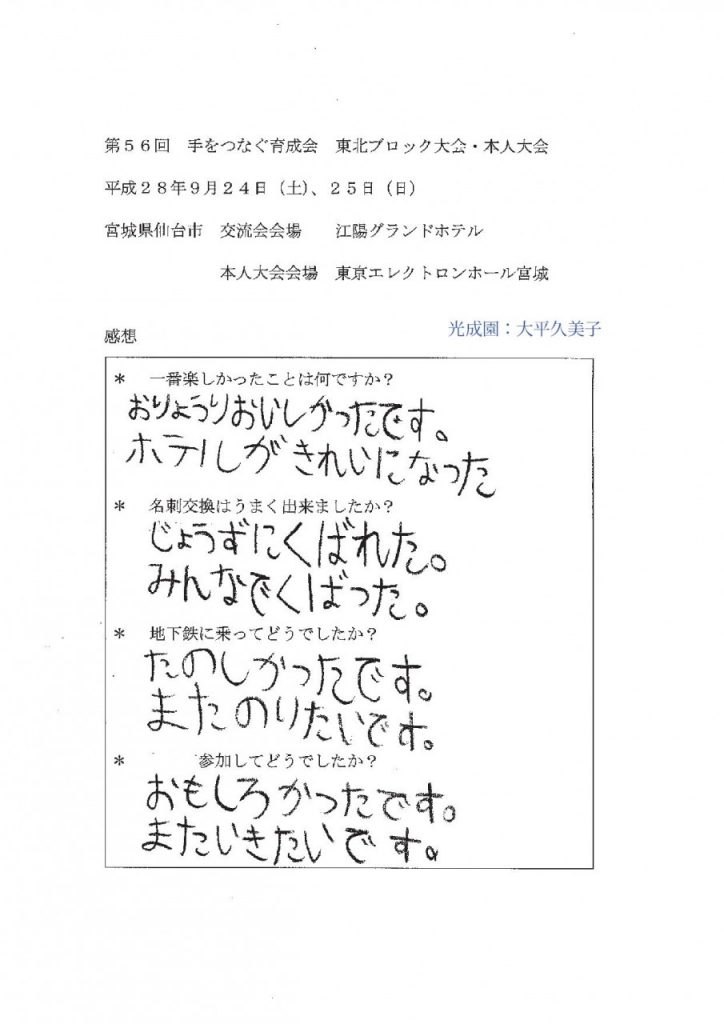 第５６回　手をつなぐ育成会　東北ブロック大会・本人大会
平成２８年９月２４日（土）、２５日（日）
宮城県仙台市　交流会会場　　江陽グランドホテル
本人大会会場　東京エレクトロンホール宮城
光成園：大平久美子
感想
＊　一番楽しかったことは何ですか？
おりょうりおいしかったです。
ホテルがきれいになった
＊　名刺交換はうまく出来ましたか？
じょうずにくばれた。
みんなでくばった。
＊　地下鉄に乗ってどうでしたか？
たのしかったです。
またのりたいです。
＊　参加してどうでしたか？
おもしろかったです。
またいきたいです。